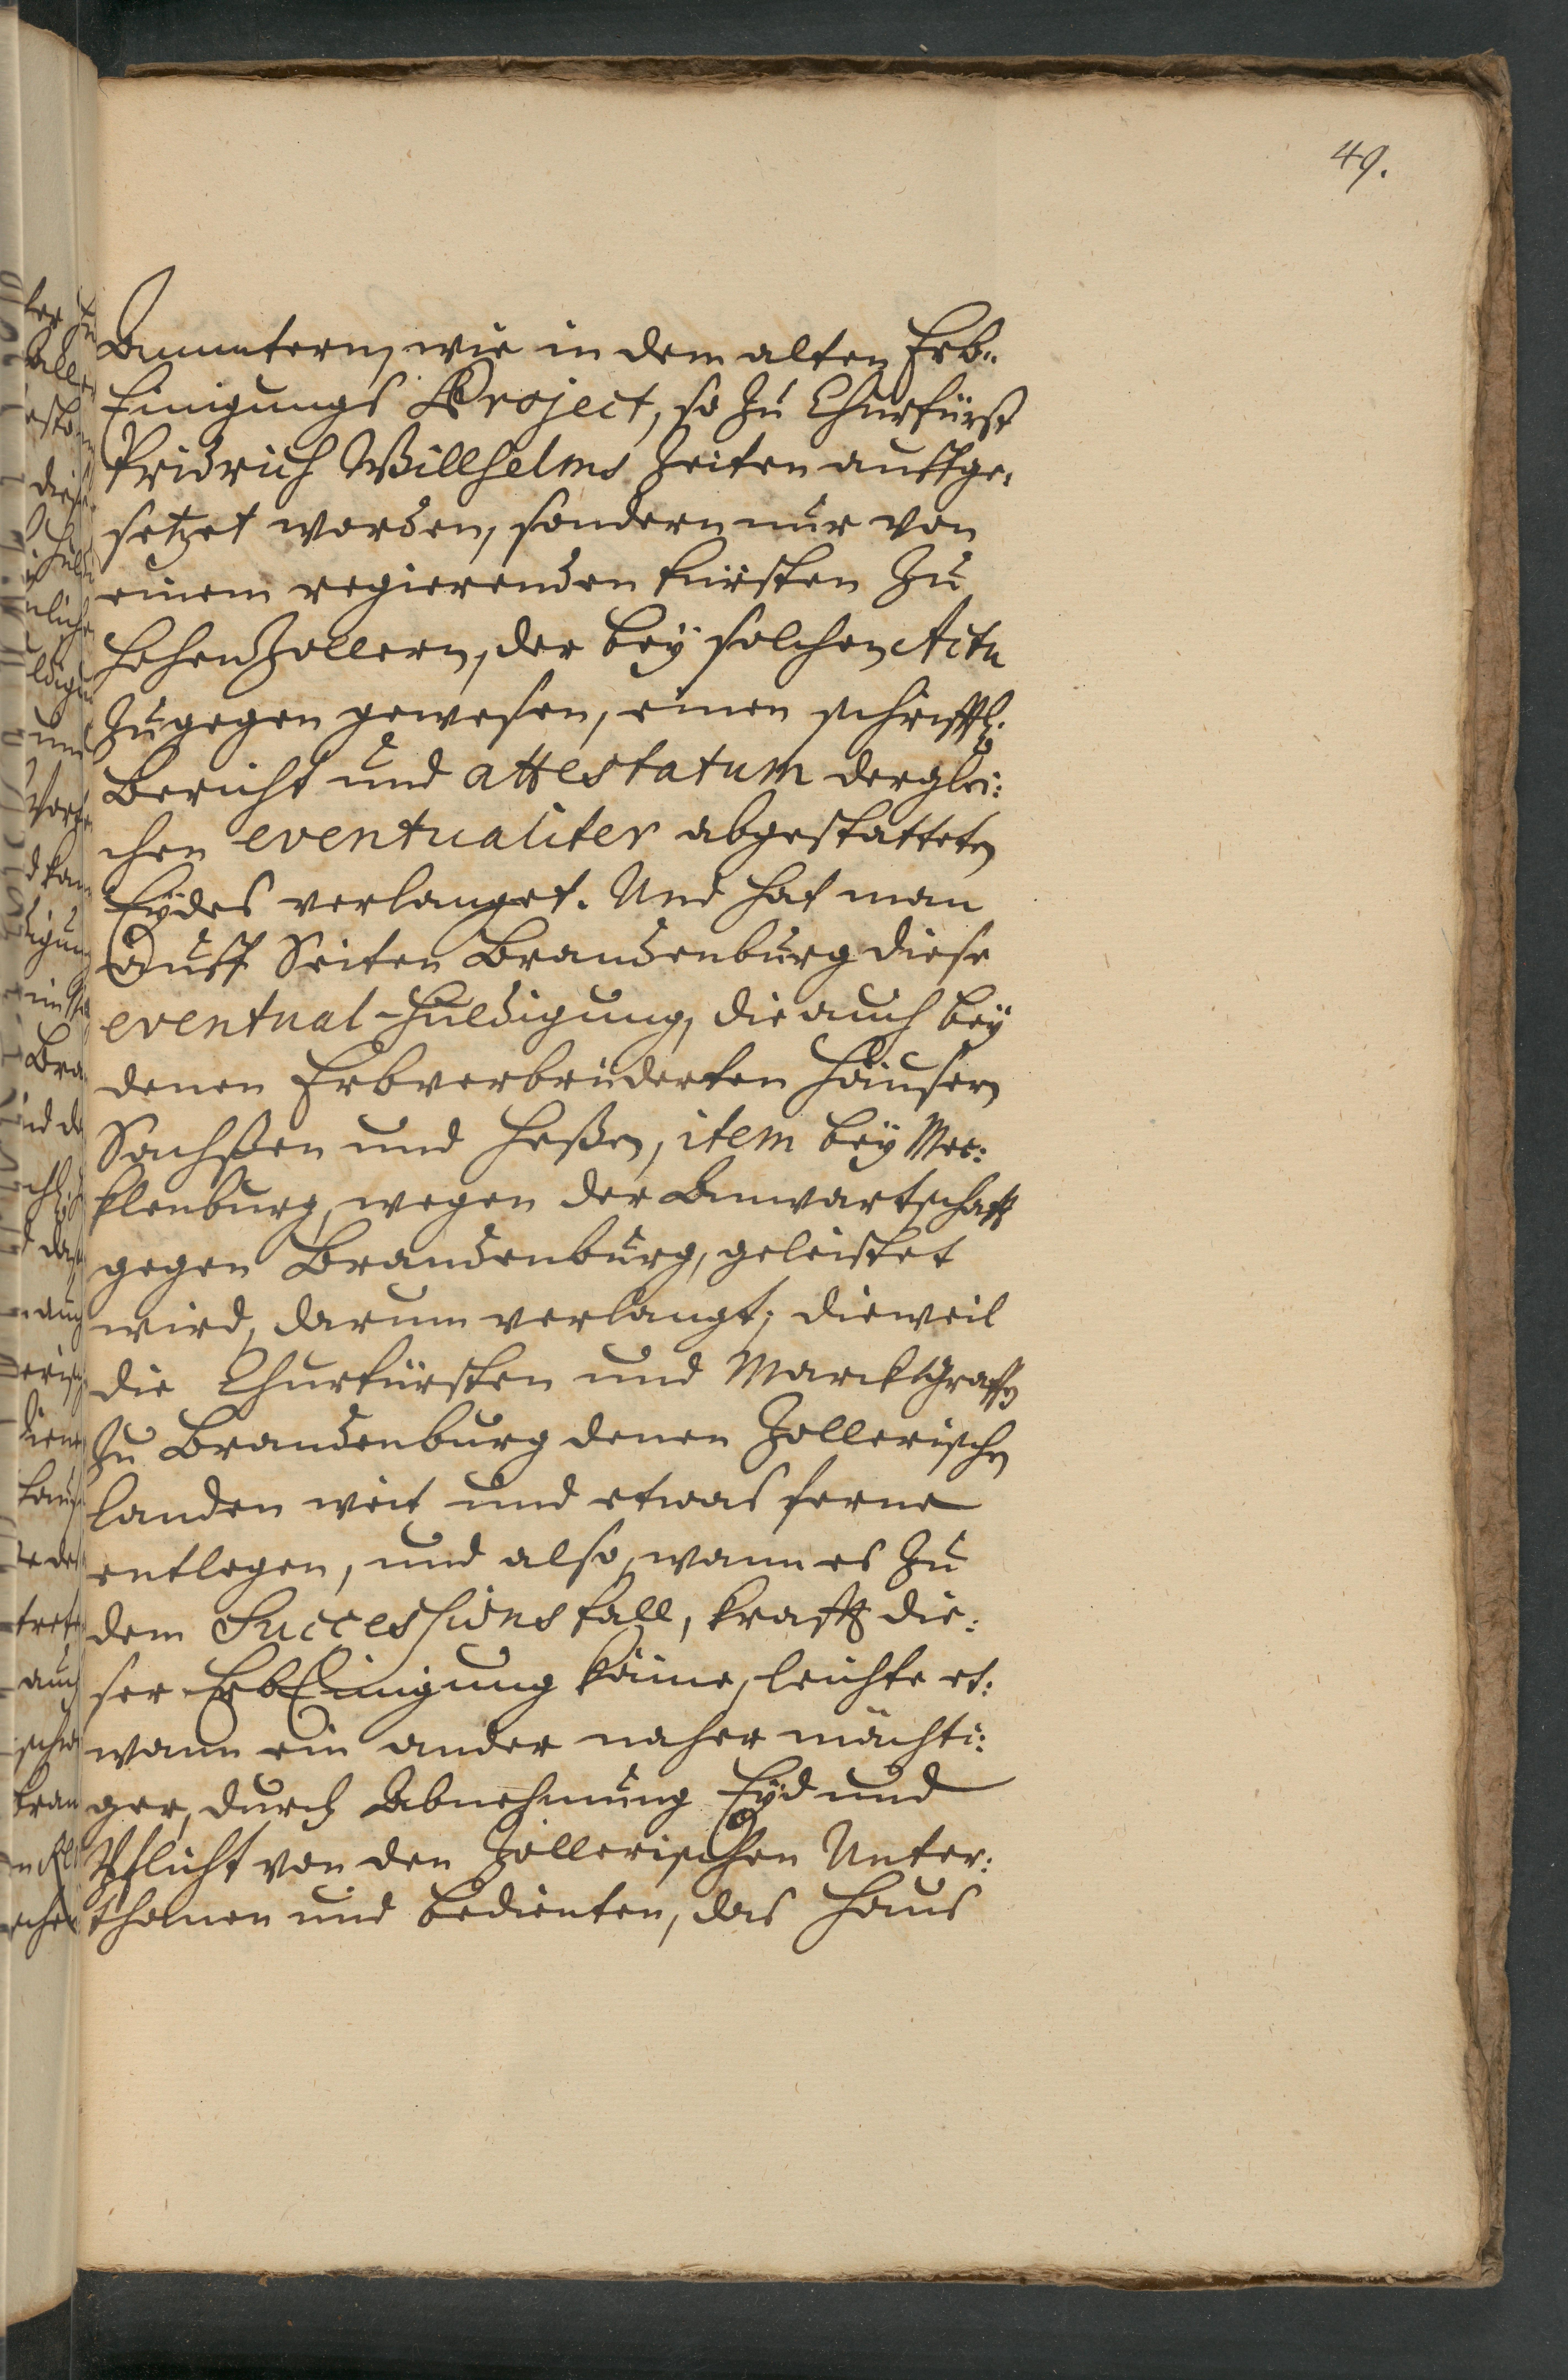 49.
Beamntern, wie in dem alten Erb-
Einigungs Project, so Zu Churfürst
Fridrich Willhelms Zeiten auffge-
setzet worden, sondern nur von
einem regierenden fürsten Zu
HohenZollern, der bey solchen Actu
Zugegen gewesen, einen schrifftl:
Bericht und attestatum derglei:
chen eventualiter abgestatteten
Eydes verlanget. Und hat man
Auff Seiten Brandenburg diese
eventual-Huldigung, die auch bey
denen Erbverbrüderten Häusern
Sachßen und Heßen, item bey Mec:
klenburg, wegen der Anwartschafft
gegen Brandenburg, geleistet
wird, darum verlangt; dieweil
die Churfürsten und Marckgraffen
Zu Brandenburg denen Zollerischen
landen weit und etwas ferne
entlegen, und also, wann es Zu
dem Successions fall, krafft die:
ser ErbEinigung käme, leichte et:
wann ein ander naher mächti:
ger, durch Abnehmung Eyd und
Pflicht von den Zollerischen Unter:
thanen und bedienten, das Haus